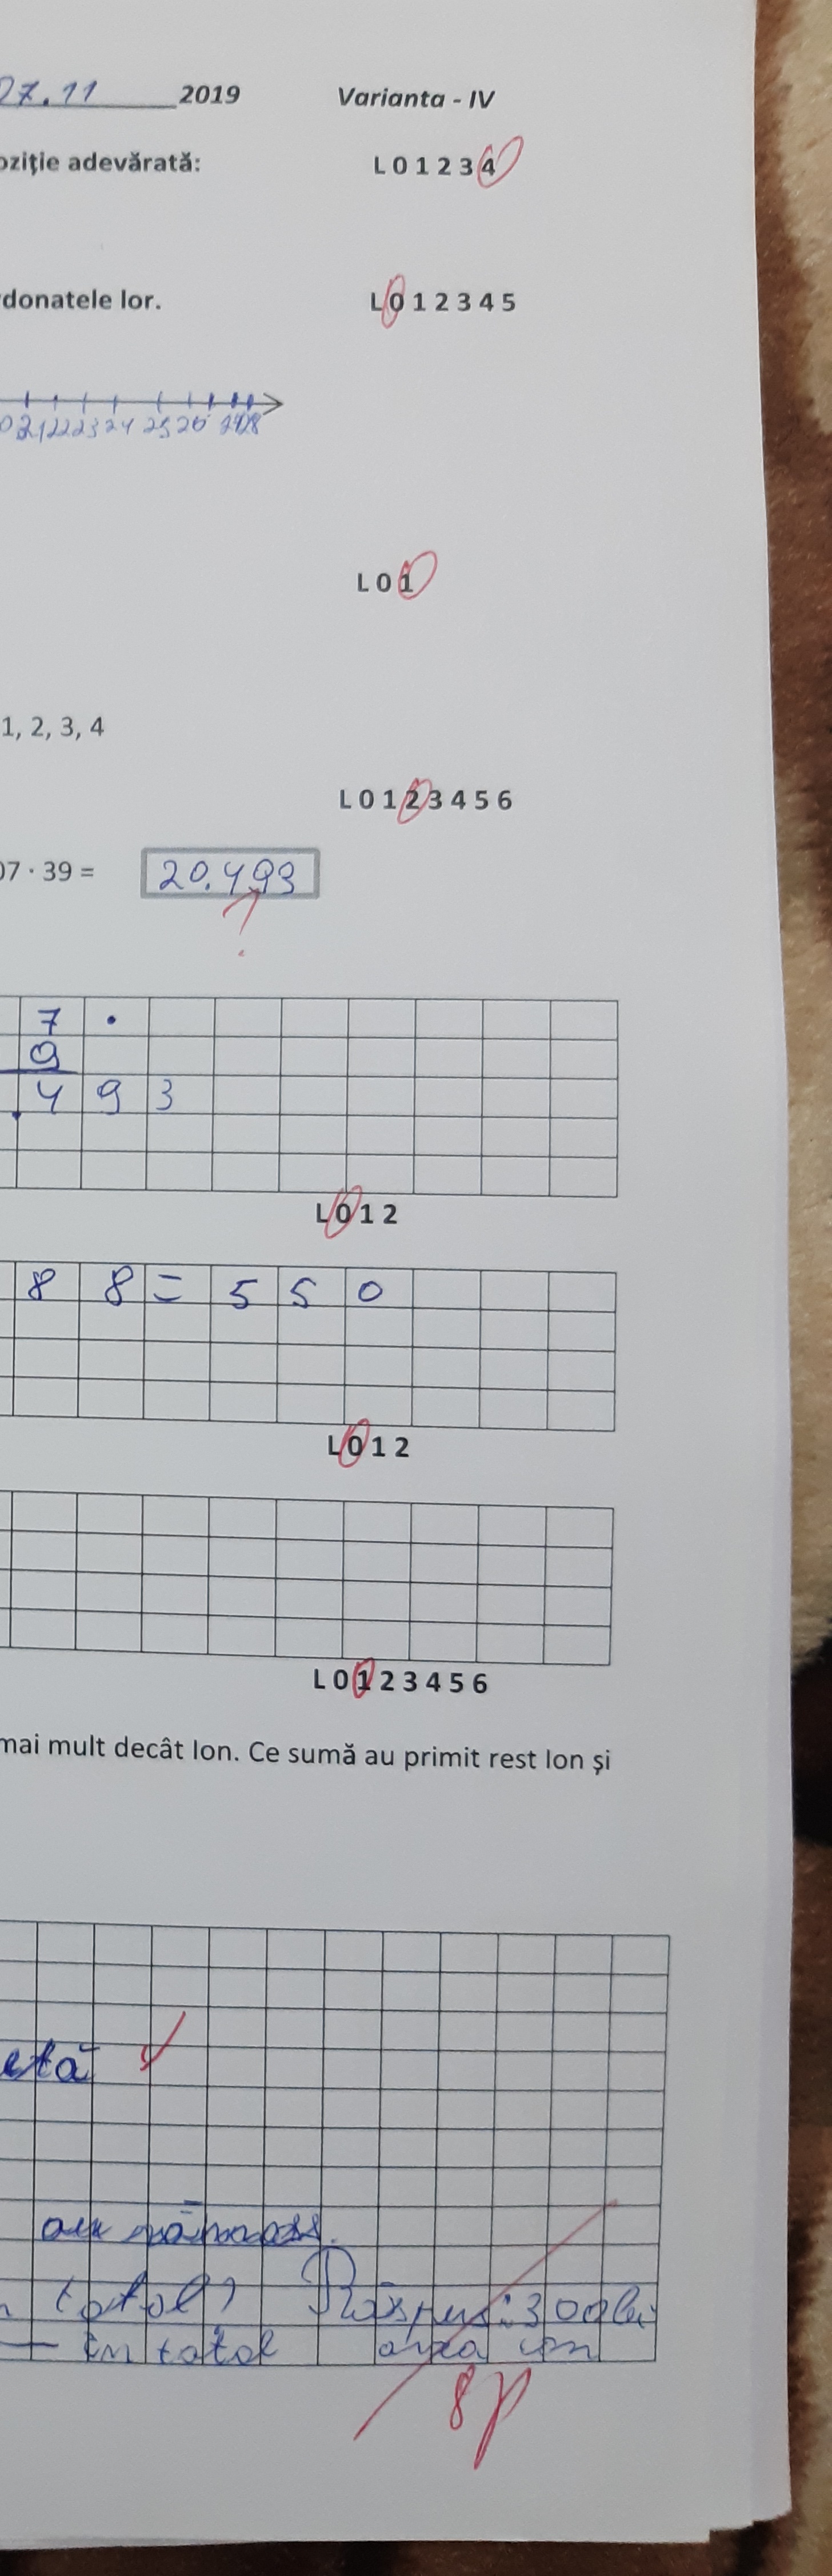 27.11 2019 Varianta - IV
oziție adevărată: L 0 1 2 3 4
donatele lor. L 0 1 2 3 4 5
22 23 24 25 26
L 0 1
1, 2, 3, 4
L 0 1 2 3 4 5 6
07 · 39 = 20.493
?
7 ·
9
. 4 9 3
L 0 1 2
8 8 = 5 5 0
L 0 1 2
L 0 1 2 3 4 5 6
mai mult decât Ion. Ce sumă au primit rest Ion și
etă
au rămas.
total) Răspuns: 300 lei
— în total
8p